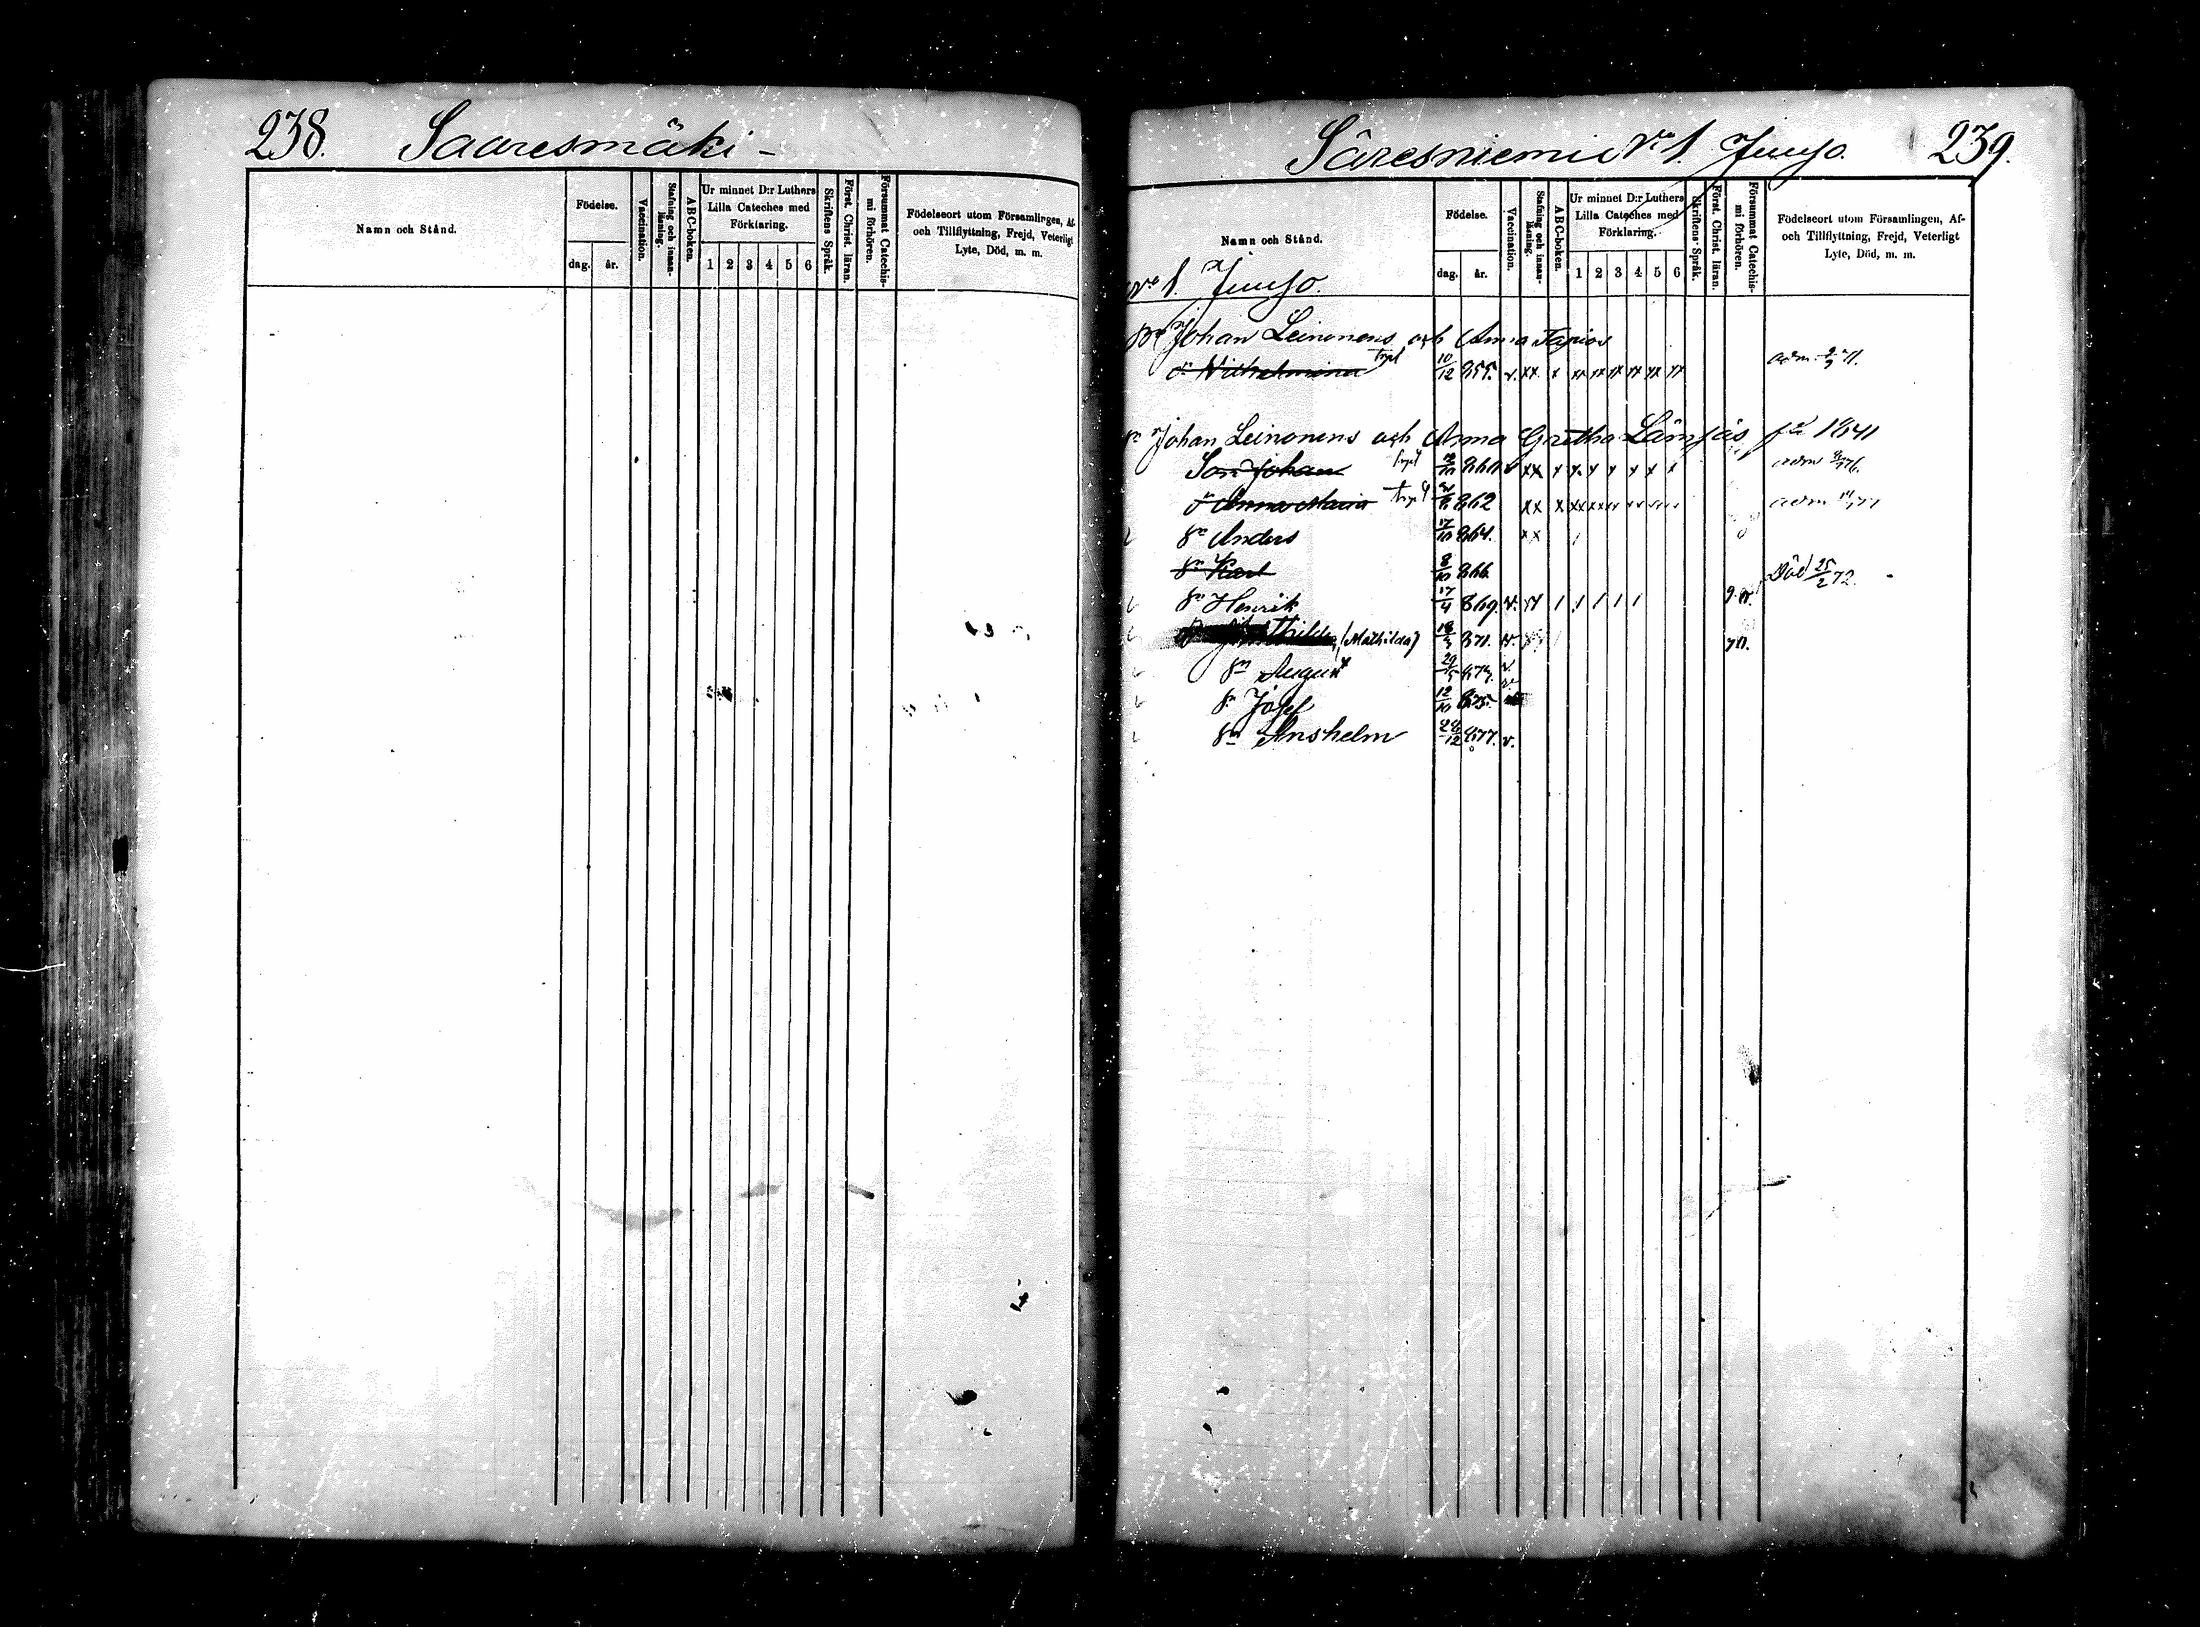 238. Saaresmäki -
Namn och Stånd.
Födelse.
dag. år.
Vaccination.
Stafning och innan-läsning.
ABC-boken.
Ur minnet D:r Luthers
Lilla Cateches med
Förklaring.
1 2 3 4 5 6
Skriftens Språk.
Först. Christ. läran.
Försummat Catechis-mi förhören.
Födelseort utom Församlingen, Af-
och Tillflyttning, Frejd, Veterligt
Lyte, Död, m. m.
Säresniemi No 1. Juujo. 239.
Namn och Stånd.
Födelse.
dag. år.
Vaccination.
Stafning och innan-läsning.
ABC-boken.
Ur minnet D:r Luthers
Lilla Cateches med
Förklaring.
1 2 3 4 5 6
Skriftens Språk.
Först. Christ. läran.
Försummat Catechis-mi förhören.
Födelseort utom Församlingen, Af-
och Tillflyttning, Frejd, Veterligt
Lyte, Död, m. m.
No 1. Juujo.
Johan Leinonens och Anna
dr Wilhelmina 10/12 855. v. xx x xx xx xx xx xx xx adm.
Johan Leinonens och Anna Gretha 1841
Son Johan xx x x x x x x adm
dr Anna Maria 862 xx x adm
Sn Anders 17/10 864. xx
Sn Karl 8/10 866. Död 25/2 72.
Sn Henrik 17/4 869. v.
(Mathilda) 871. v.
Sn August v
Sn Josef 12/10 875.
Sn Anshelm 877. v.